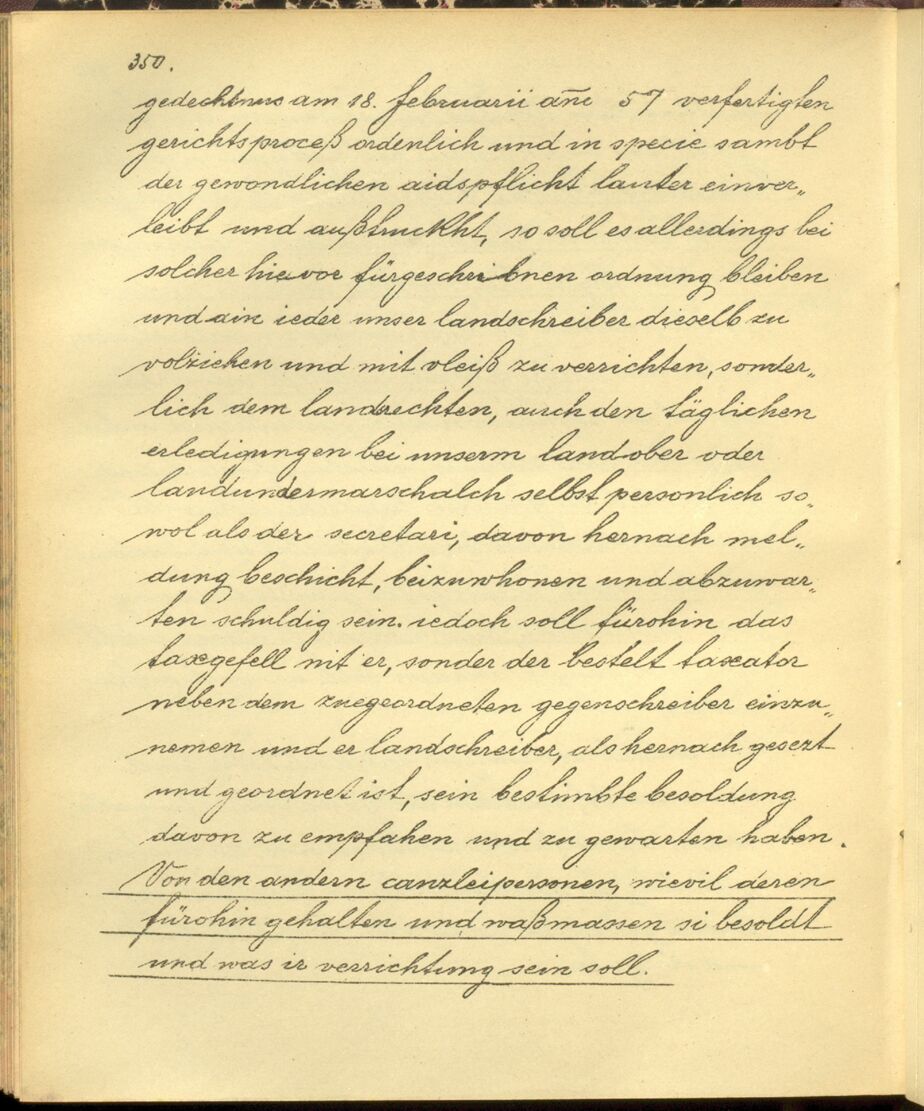 350.
gedechtnus am 18. februarii ann̄ 57 verfertigten
gerichtsproceß ordenlich und in specie sambt
der gewondlichen aidspflicht lauter einver„
leibt und außtruckht, so soll es allerdings bei
solcher hievor fürgeschribnen ordnung bleiben
und ain ieder unser landschreiber dieselb zu
volziehen und mit vleiß zu verrichten, sonder„
lich dem landrechten, auch den täglichen
erledigungen bei unserm land ober oder
landundermarschalch selbst personlich so„
wol als der secretari, davon hernach mel„
dung beschicht, beizuwhonen und abzuwar„
ten schuldig sein. iedoch soll fürohin das
taxgefell nit er, sonder der bestelt taxator
neben dem zuegeordneten gegenschreiber einzu„
nemen und er landschreiber, als hernach gesezt
und geordnet ist, sein bestimbte besoldung
davon zu empfahen und zu gewarten haben.
Von den andern canzleipersonen, wievil deren
fürohin gehalten und waßmassen si besoldt
und was ir verrichtung sein soll.